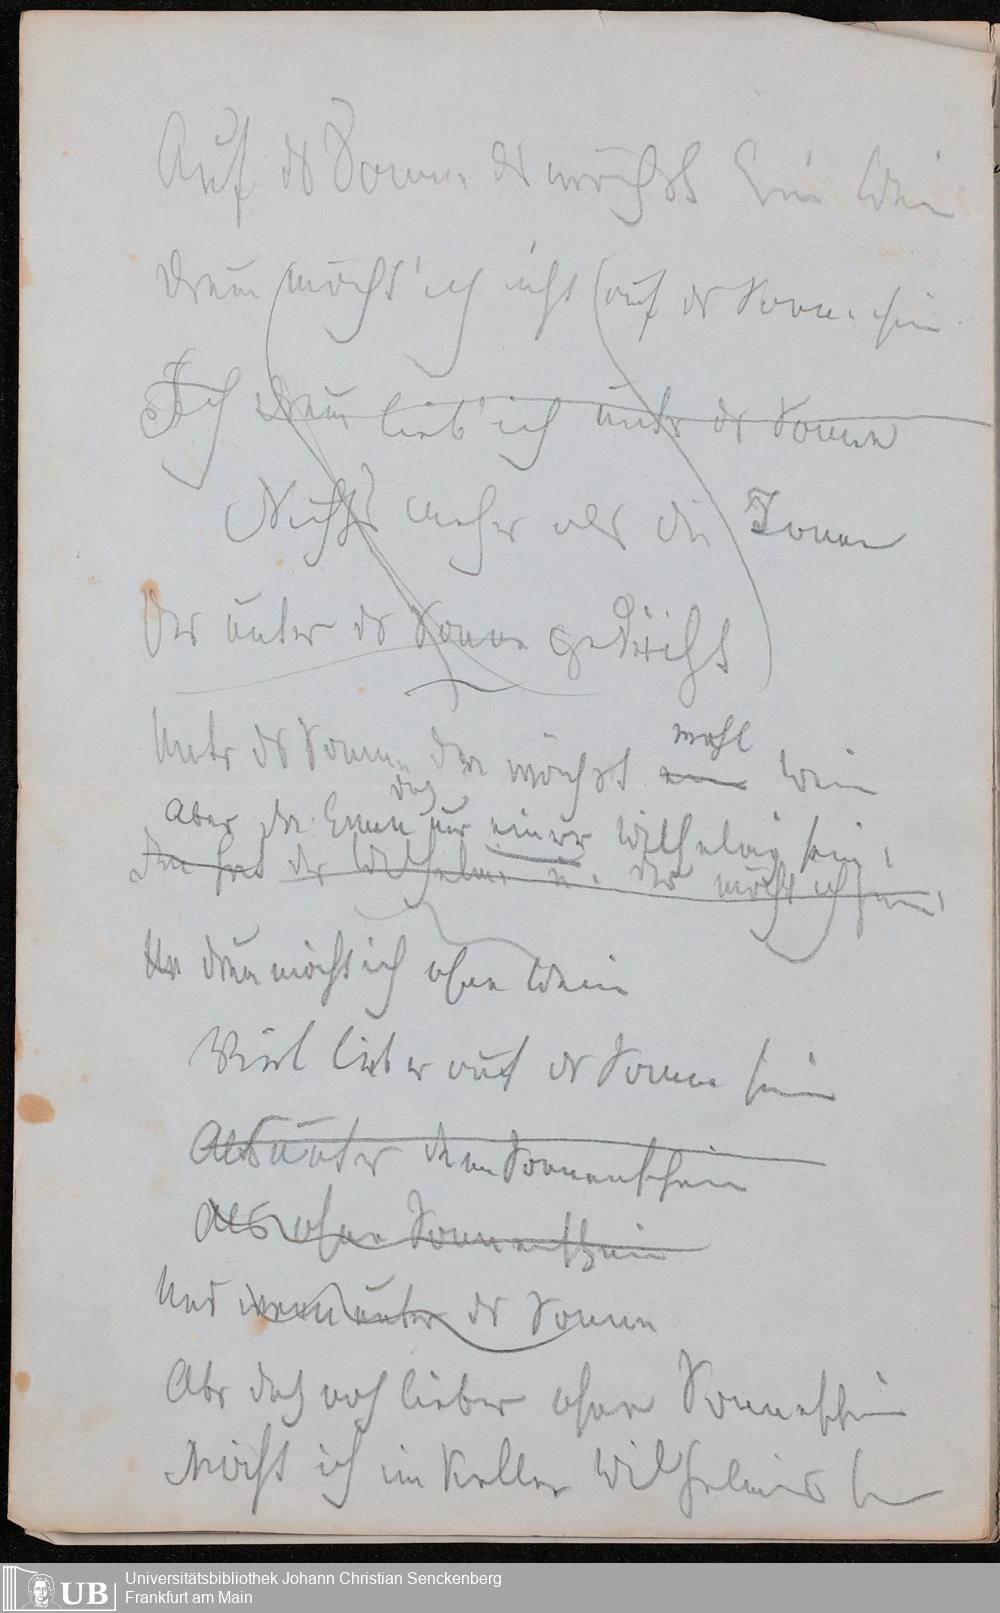 Auf der Sonne da wächst kein Wein
Drum möcht' ich nicht auf der Sonne sein
Ich Drum lieb' ich unter der Sonne
Nichts mehr als die Tonne
Der unter der Sonne gedeiht
Unter der Sonne da wächst wohl Wein
doch
Aber der nur einer Wilhelmj sein,
Den hat der Wilhelmj u. der möcht ich sein,
Ur drum möcht ich ohne Wein
Viel lieber auf der Sonne sein
Als unter dem Sonnenschein
Als ohne Sonnenschein
Und wenn unter der Sonne
Aber doch noch lieber ohne Sonneschein
Möcht ich im Keller Wilhelmjs sein
Universitätsbibliothek Johann Christian Senckenberg
UB
Frankfurt am Main